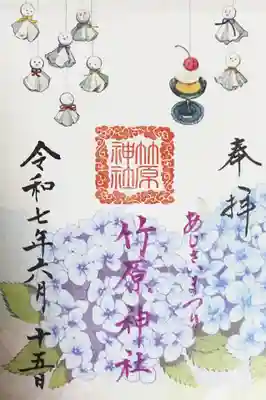 奉拝
あじさいまつり
竹原神社
竹原神社
令和七年六月十五日